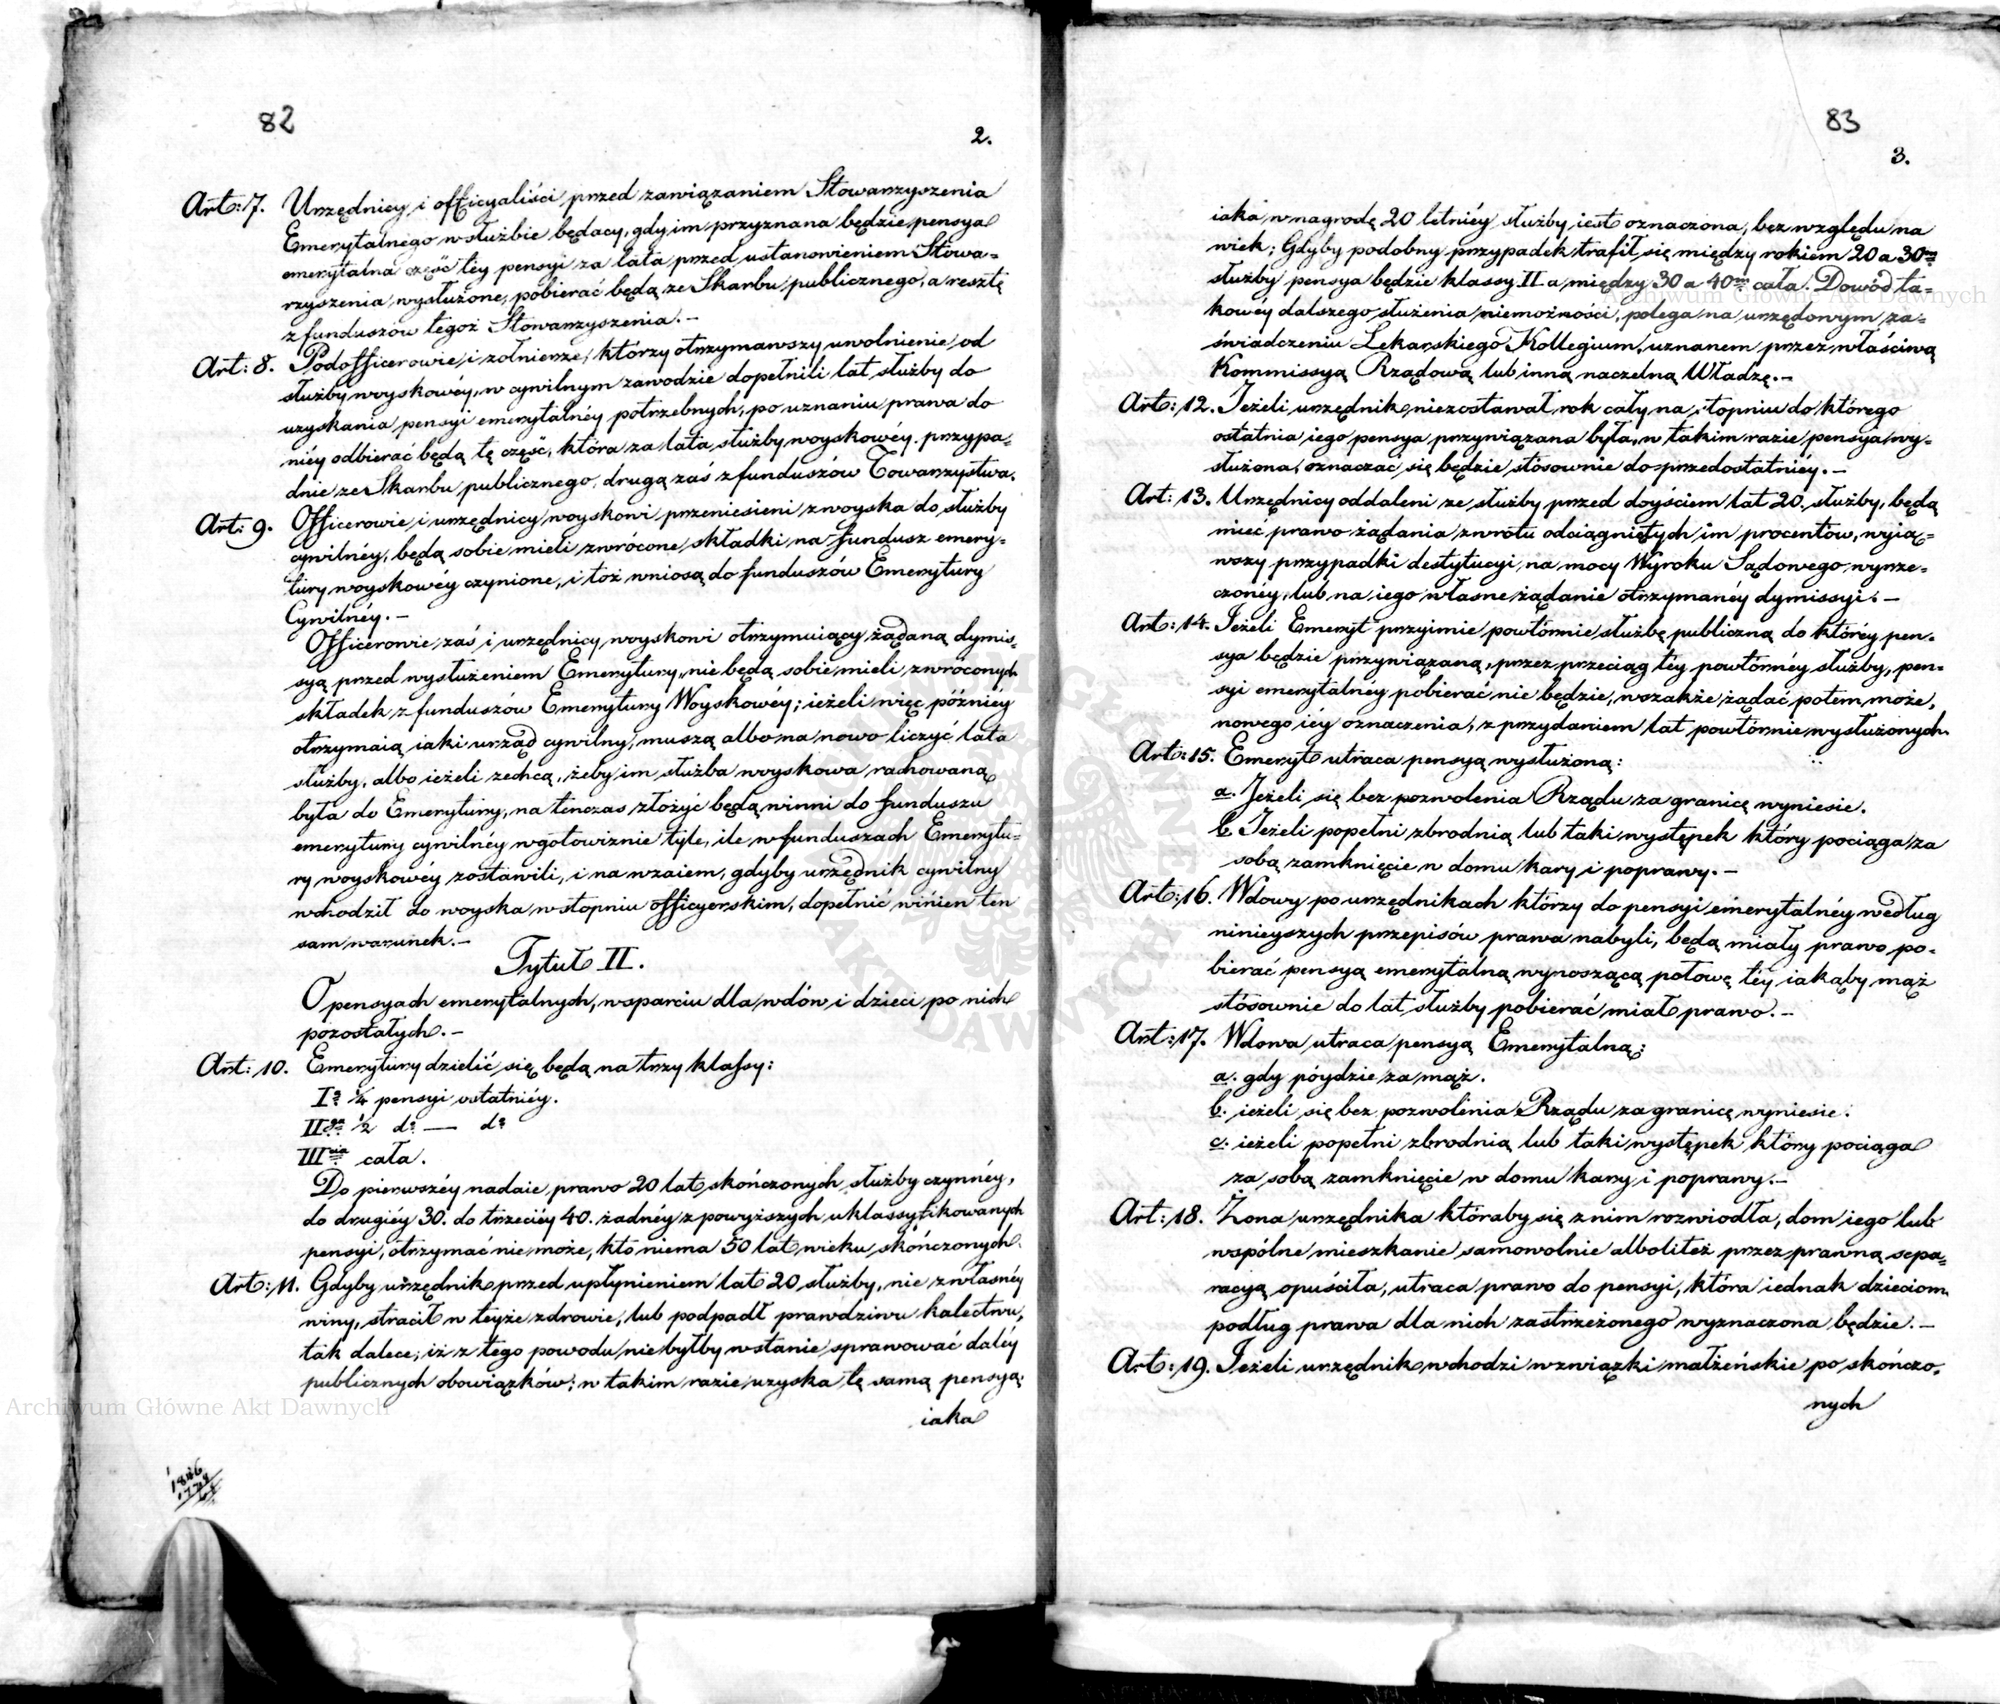 82
2.
Art: 7. Urzędnicy i officyaliści przed zawiązaniem Stowarzyszenia
Emerytalnego w służbie będący, gdy im przyznana będzie pensya
emerytalna część téy pensyi za lata przed ustanowieniem Stowa=
rzyszenia, wysłużone, pobierać będą ze Skarbu publicznego, a resztę
z funduszów tegoż Stowarzyszenia.-
Art: 8. Podofficerowie i żołnierze, którzy otrzymawszy uwolnienie od
służby woyskowéy, w cywilnym zawodzie dopełnili lat służby do
uzyskania pensyi emerytalnéy potrzebnych, po uznaniu prawa do
niéy odbierać będą tę część, która za lata służby woyskowéy przypa=
dnie ze Skarbu publicznego, drugą zaś z funduszów Towarzystwa.
Art: 9. Officerowie i urzędnicy woyskowi przeniesieni z woyska do służby
cywilnéy, będą sobie mieli zwrócone składki na fundusz emery=
tury woyskowéy czynione, i też wniosą do funduszów Emerytury
Cywilnéy.-
Officerowie zaś i urzędnicy woyskowi otrzymuiący żądaną dymis=
syą przed wysłużeniem Emerytury, nie będą sobie mieli zwróconych
składek z funduszów Emerytury Woyskowéy; ieżeli więc późniéy
otrzymaią iaki urząd cywilny, muszą albo na nowo liczyć lata
służby, albo ieżeli zechcą, żeby im służba woyskowa rachowaną
była do Emerytury, na tenczas złożyć będą winni do funduszu
emerytury cywilnéy w gotowiznie tyle, ile w funduszach Emerytu=
ry woyskowéy zostawili, i na wzaiem, gdyby urzędnik cywilny
wchodził do woyska w stopniu officyerskim, dopełnić winien ten
sam warunek.-
Tytuł II.
O pensyach emerytalnych, wsparciu dla wdów i dzieci po nich
pozostałych.-
Art: 10. Emerytury dzielić się będą na trzy klassy:
Iª ¼ pensyi ostatniéy.
IIga ½ dº — dº
IIIcia cała.
Do pierwszéy nadaie prawo 20 lat skończonych służby czynnéy,
do drugiéy 30. do trzeciéy 40. żadnéy z powyższych uklassyfikowanych
pensyi, otrzymać nie może, kto niema 50 lat wieku skończonych.
Art: 11. Gdyby urzędnik przed upłynieniem lat 20 służby, nie z własnéy
winy, stracił w teyże zdrowie, lub podpadł prawdziwu kalectwu,
tak dalece, iż z tego powodu nie byłby w stanie sprawować daléy
publicznych obowiązków; w takim razie uzyska tę samą pensyą,
iaka
83
3.
iaka w nagrodę 20 letniéy służby iest oznaczona, bez względu na
wiek; Gdyby podobny przypadek trafił się między rokiem 20 a 30m
służby pensya będzie klassy II a między 30 a 40m cała. Dowód ta=
kowéy dalszego służenia niemożności, polega na urzędowym za=
świadczeniu Lekarskiego Kollegium, uznanem przez właściwą
Kommissyą Rządową lub inną naczelną Władzę.-
Art: 12. Jeżeli urzędnik niezostawał rok cały na stopniu do którego
ostatnia iego pensya przywiązana była, w takim razie pensya wy=
służona, oznaczać się będzie stósownie do przedostatniéy.-
Art: 13. Urzędnicy oddaleni ze służby przed doyściem lat 20. służby, będą
mieć prawo żądania zwrotu odciągniętych im procentów, wyią=
wszy przypadki destytucyi, na mocy Wyroku Sądowego wyrze=
czonéy, lub na iego własne żądanie otrzymanéy dymissyi.-
Art: 14. Jeżeli Emeryt przyimie powtórnie służbę publiczną do któréy pen=
sya będzie przywiązaną, przez przeciąg téy powtórnéy służby, pen=
syi emerytalnéy pobierać nie będzie, wszakże żądać potem może,
nowego iéy oznaczenia, z przydaniem lat powtórnie wysłużonych.
Art: 15. Emeryt utraca pensyą wysłużoną:
a. Jeżeli się bez pozwolenia Rządu za granicę wyniesie.
b. Jeżeli popełni zbrodnią lub taki występek który pociąga za
sobą zamknięcie w domu kary i poprawy.-
Art: 16. Wdowy po urzędnikach którzy do pensyi emerytalnéy według
ninieyszych przepisów prawa nabyli, będą miały prawo po=
bierać pensyą emerytalną wynoszącą połowę téy iakąby mąż
stósownie do lat służby pobierać miał prawo.-
Art: 17. Wdowa utraca pensyą Emerytalną:
a. gdy póydzie za mąż.
b. ieżeli się bez pozwolenia Rządu za granicę wyniesie.
c. ieżeli popełni zbrodnią lub taki występek który pociąga
za sobą zamknięcie w domu kary i poprawy.-
Art: 18. Żona urzędnika któraby się z nim rozwiodła, dom iego lub
wspólne mieszkanie samowolnie albo liteż przez prawną sepa=
racyą opuściła, utraca prawo do pensyi, która iednak dzieciom
podług prawa dla nich zastrzeżonego wyznaczona będzie.-
Art: 19. Jeżeli urzędnik wchodzi w związki małżeńskie po skończo=
nych
Archiwum Główne Akt Dawnych
Archiwum Główne Akt Dawnych
ARCHIWUM GŁÓWNE AKT DAWNYCH